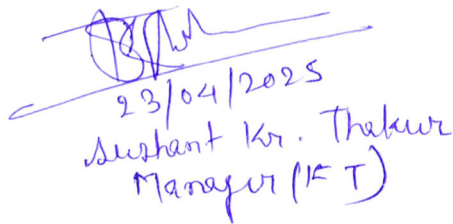 23/04/2025
Sushant Kr. Thakur
Manager (